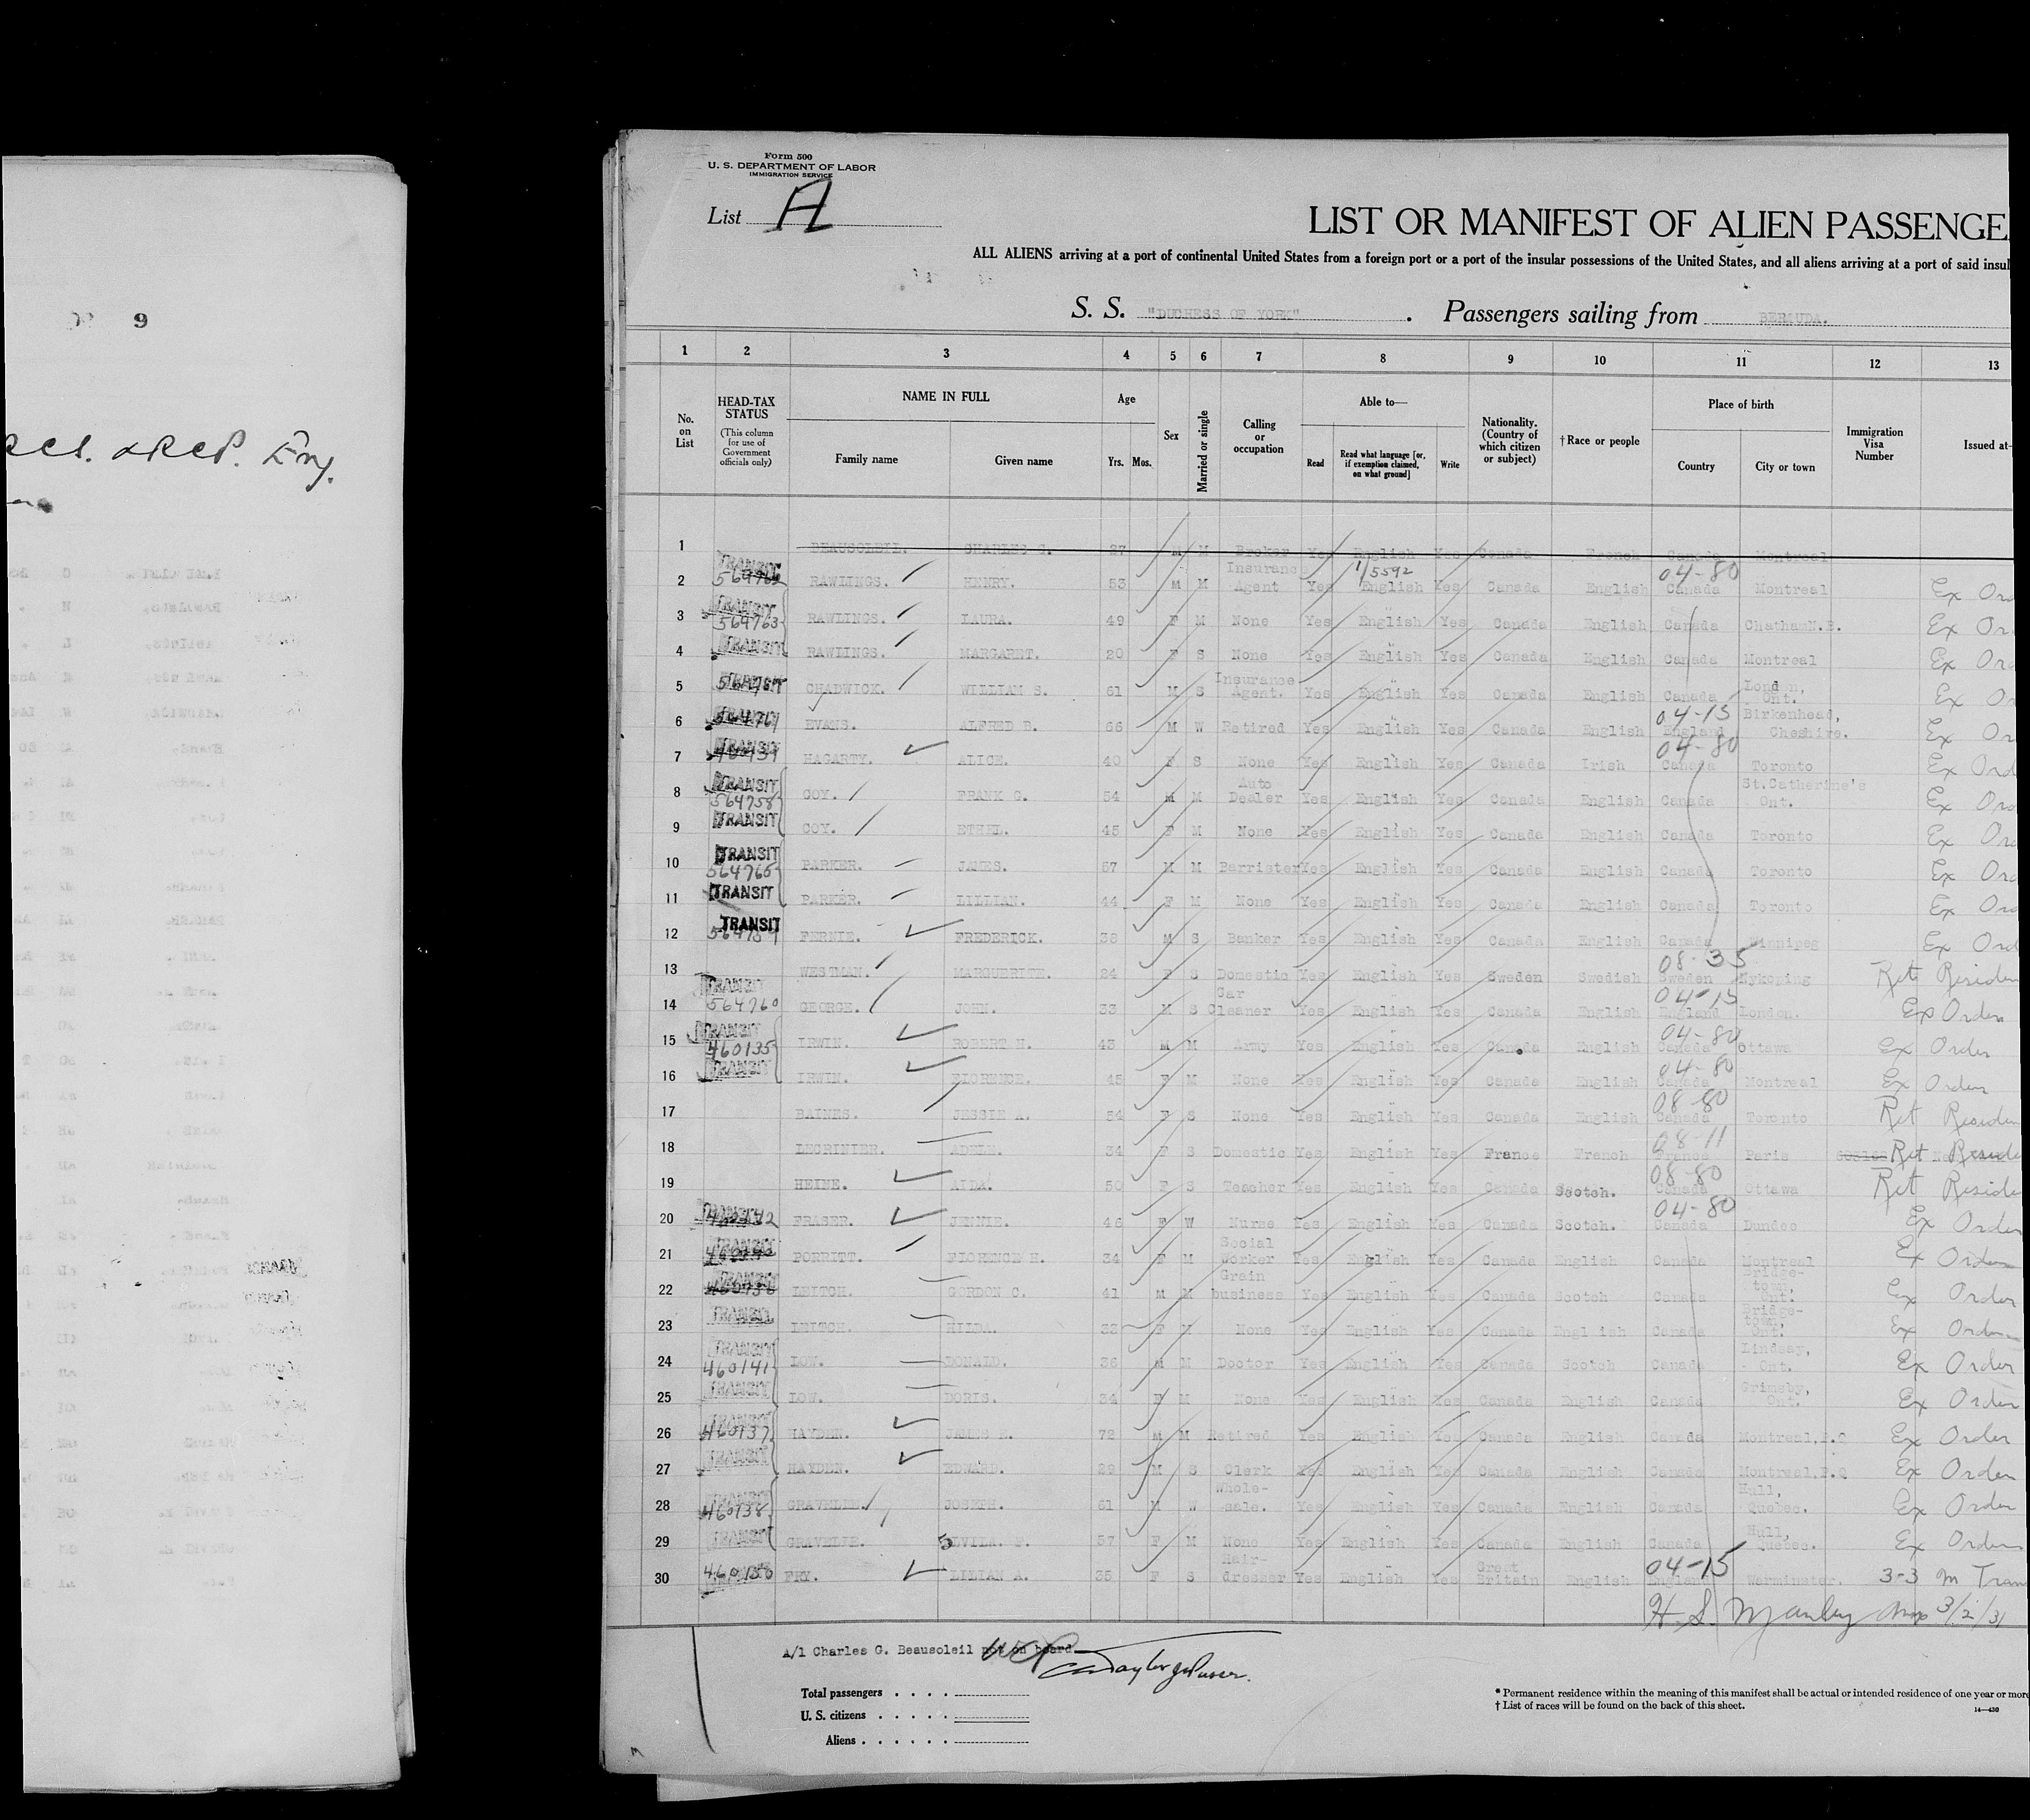 9
Eng.
Form 500
U. S. DEPARTMENT OF LABOR
IMMIGRATION SERVICE
List A
LIST OR MANIFEST OF ALIEN PASSENGE
ALL ALIENS arriving at a port of continental United States from a foreign port or a port of the insular possessions of the United States, and all aliens arriving at a port of said insul
S. S. "DUCHESS OF YORK". Passengers sailing from BERMUDA.
1 2 3 4 5 6 7 8 9 10 11 12 13
No. on List
HEAD-TAX STATUS
(This column for use of Government officials only)
NAME IN FULL
Family name Given name
Age
Yrs. Mos.
Sex
Married or single
Calling or occupation
Able to—
Read
Read what language [or, if exemption claimed, on what ground]
Write
Nationality. (Country of which citizen or subject)
†Race or people
Place of birth
Country City or town
Immigration Visa Number
Issued at—
1 BEAUSOLEIL. CHARLES G. 27 M M Broker Yes English Yes Canada French Canada Montreal
2 TRANSIT 564762 RAWLINGS. HENRY. 53 M M Insurance Agent Yes 1/5592 English Yes Canada English 04-80 Canada Montreal Ex Ord
3 TRANSIT 564763 RAWLINGS. LAURA. 49 F M None Yes English Yes Canada English Canada Chatham N.B. Ex Or
4 TRANSIT RAWLINGS. MARGARET. 20 F S None Yes English Yes Canada English Canada Montreal Ex Or
5 TRANSIT CHADWICK. WILLIAM S. 61 M S Insurance Agent. Yes English Yes Canada English Canada London, Ont. Ex Or
6 TRANSIT 564761 EVANS. ALFRED E. 66 M W Retired Yes English Yes Canada English 04-15 England Birkenhead, Cheshire. Ex Or
7 TRANSIT HAGARTY. ALICE. 40 F S None Yes English Yes Canada Irish 04-80 Canada Toronto Ex Ord
8 TRANSIT 564758 COY. FRANK G. 54 M M Auto Dealer Yes English Yes Canada English Canada St.Catherine's Ont. Ex Ord
9 TRANSIT COY. ETHEL. 45 F M None Yes English Yes Canada English Canada Toronto Ex Or
10 TRANSIT 564765 PARKER. JAMES. 57 M M Barrister Yes English Yes Canada English Canada Toronto Ex Ord
11 TRANSIT PARKER. LILLIAN. 44 F M None Yes English Yes Canada English Canada Toronto Ex Ord
12 TRANSIT FERNIE. FREDERICK. 38 M S Banker Yes English Yes Canada English Canada Winnipeg Ex Ord
13 WESTMAN. MARGUERITE. 24 F S Domestic Yes English Yes Sweden Swedish 08-35 Sweden Nykoping Ret Residen
14 TRANSIT 564760 GEORGE. JOHN. 33 M S Car Cleaner Yes English Yes Canada English 04-15 England London. Ex Order
15 TRANSIT 460135 IRWIN. ROBERT H. 43 M M Army Yes English Yes Canada English 04-80 Canada Ottawa Ex Order
16 TRANSIT IRWIN. FLORENCE. 45 F M None Yes English Yes Canada English 04-80 Canada Montreal Ex Order
17 BAINES. JESSIE A. 54 F S None Yes English Yes Canada English 08-80 Canada Toronto Ret Residen
18 LECRINIER. ADELE. 34 F S Domestic Yes English Yes France French 08-11 France Paris Ret Reside
19 HEINE. AIDA. 50 F S Teacher Yes English Yes Canada Scotch. 08-80 Canada Ottawa Ret Reside
20 TRANSIT FRASER. JENNIE. 46 F W Nurse Yes English Yes Canada Scotch. 04-80 Canada Dundee Ex Order
21 TRANSIT PORRITT. FLORENCE H. 34 F M Social Worker Yes English Yes Canada English Canada Montreal Ex Order
22 TRANSIT LEITCH. GORDON C. 41 M M Grain business Yes English Yes Canada Scotch Canada Bridge-town, Ont. Ex Order
23 TRANSIT LEITCH. HILDA. 33 F M None Yes English Yes Canada English Canada Bridge-town, Ont. Ex Order
24 TRANSIT 460141 LOW. DONALD. 36 M M Doctor Yes English Yes Canada Scotch Canada Lindsay, Ont. Ex Order
25 TRANSIT LOW. DORIS. 34 F M None Yes English Yes Canada English Canada Grimsby, Ont. Ex Order
26 TRANSIT 460137 HAYDEN. JAMES E. 72 M M Retired Yes English Yes Canada English Canada Montreal,P.Q Ex Order
27 TRANSIT HAYDEN. EDWARD. 29 M S Clerk Yes English Yes Canada English Canada Montreal,P.Q Ex Order
28 TRANSIT 460138 GRAVELLE. JOSEPH. 61 M W Whole-sale. Yes English Yes Canada English Canada Hull, Quebec. Ex Order
29 TRANSIT GRAVELLE. 57 F M None Yes English Yes Canada English Canada Hull, Quebec. Ex Order
30 FRY. LILIAN A. 35 F S Hair-dresser Yes English Yes Great Britain English 04-15 England Warminster. 3-3 m Tran
H. S. Manley 3/2/31
A/1 Charles G. Beausoleil not on board
Total passengers
U. S. citizens
Aliens
* Permanent residence within the meaning of this manifest shall be actual or intended residence of one year or more
† List of races will be found on the back of this sheet.
14—430